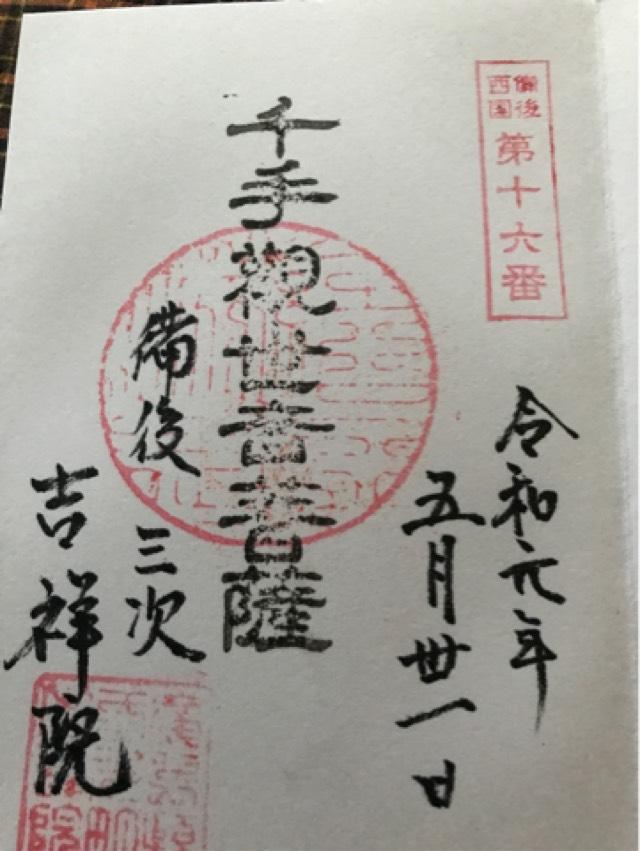 備後
西国
第十六番
令和元年
五月卅一日
千手觀世音菩薩
備後 三次
吉祥院